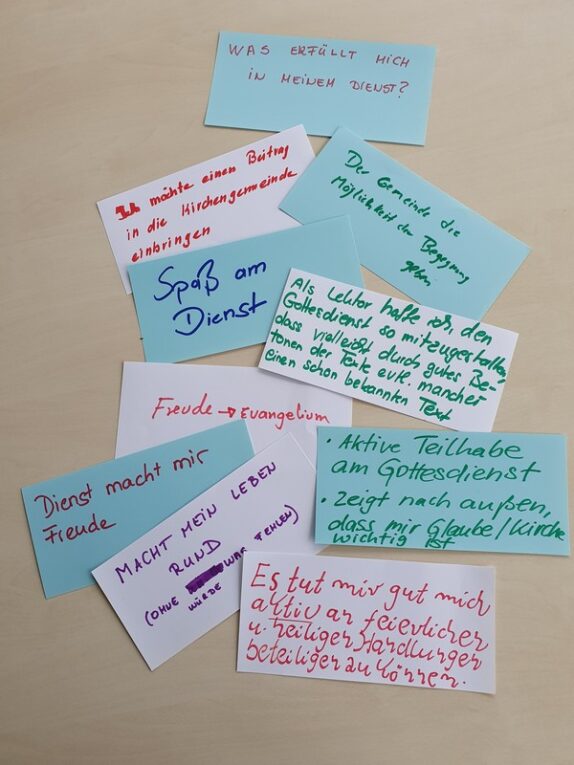 WAS ERFÜLLT MICH
IN MEINEM DIENST?
Ich möchte einen Beitrag
in die Kirchengemeinde
einbringen
Der Gemeinde die
Möglichkeit der Begegnung
geben
Spaß am
Dienst
Als Lektor helfe ich, den
Gottesdienst so mitzugestalten,
dass vielleicht durch gutes Be-
tonen der Texte evtl. mancher
einen schon bekannten Text
Freude → Evangelium
Dienst macht mir
Freude
MACHT MEIN LEBEN
RUND
(OHNE WAS FEHLEN)
WÜRDE
• Aktive Teilhabe
am Gottesdienst
• Zeigt nach außen,
dass mir Glaube/Kirche
wichtig ist
Es tut mir gut mich
aktiv an feierlicher
u. heiliger Handlungen
beteiligen zu können.